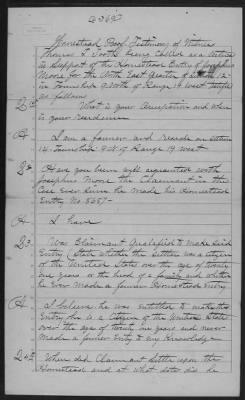 Homestead Proof Testimony of Witness
Thomas L. Tooth being called as a witness
in Support of the Homestead Entry of Josephus
Moore for the North East Quarter of Section 12
in Township 9 North of Range 19 West testifies
as follows
What is your occupation and where
is your residence
A I am a farmer and reside on Section
14. Township 9 N of Range 19 West
Q2 Are you been well acquainted with
Josephus Moore the Claimant in this
Case ever since he made his Homestead
Entry No. 5557
A I have
Q3 Was Claimant Qualified to make said
Entry State whether the settler was a citizen
of the United States over the age of twenty
one years or the head of a family and whether
he ever made a former Homestead Entry
A I believe he was entitled to make this
Entry he is a Citizen of the United States
over the age of twenty one years and never
made a former Entry to my Knowledge
Q4 When did Claimant settle upon the
Homestead and at what date did he